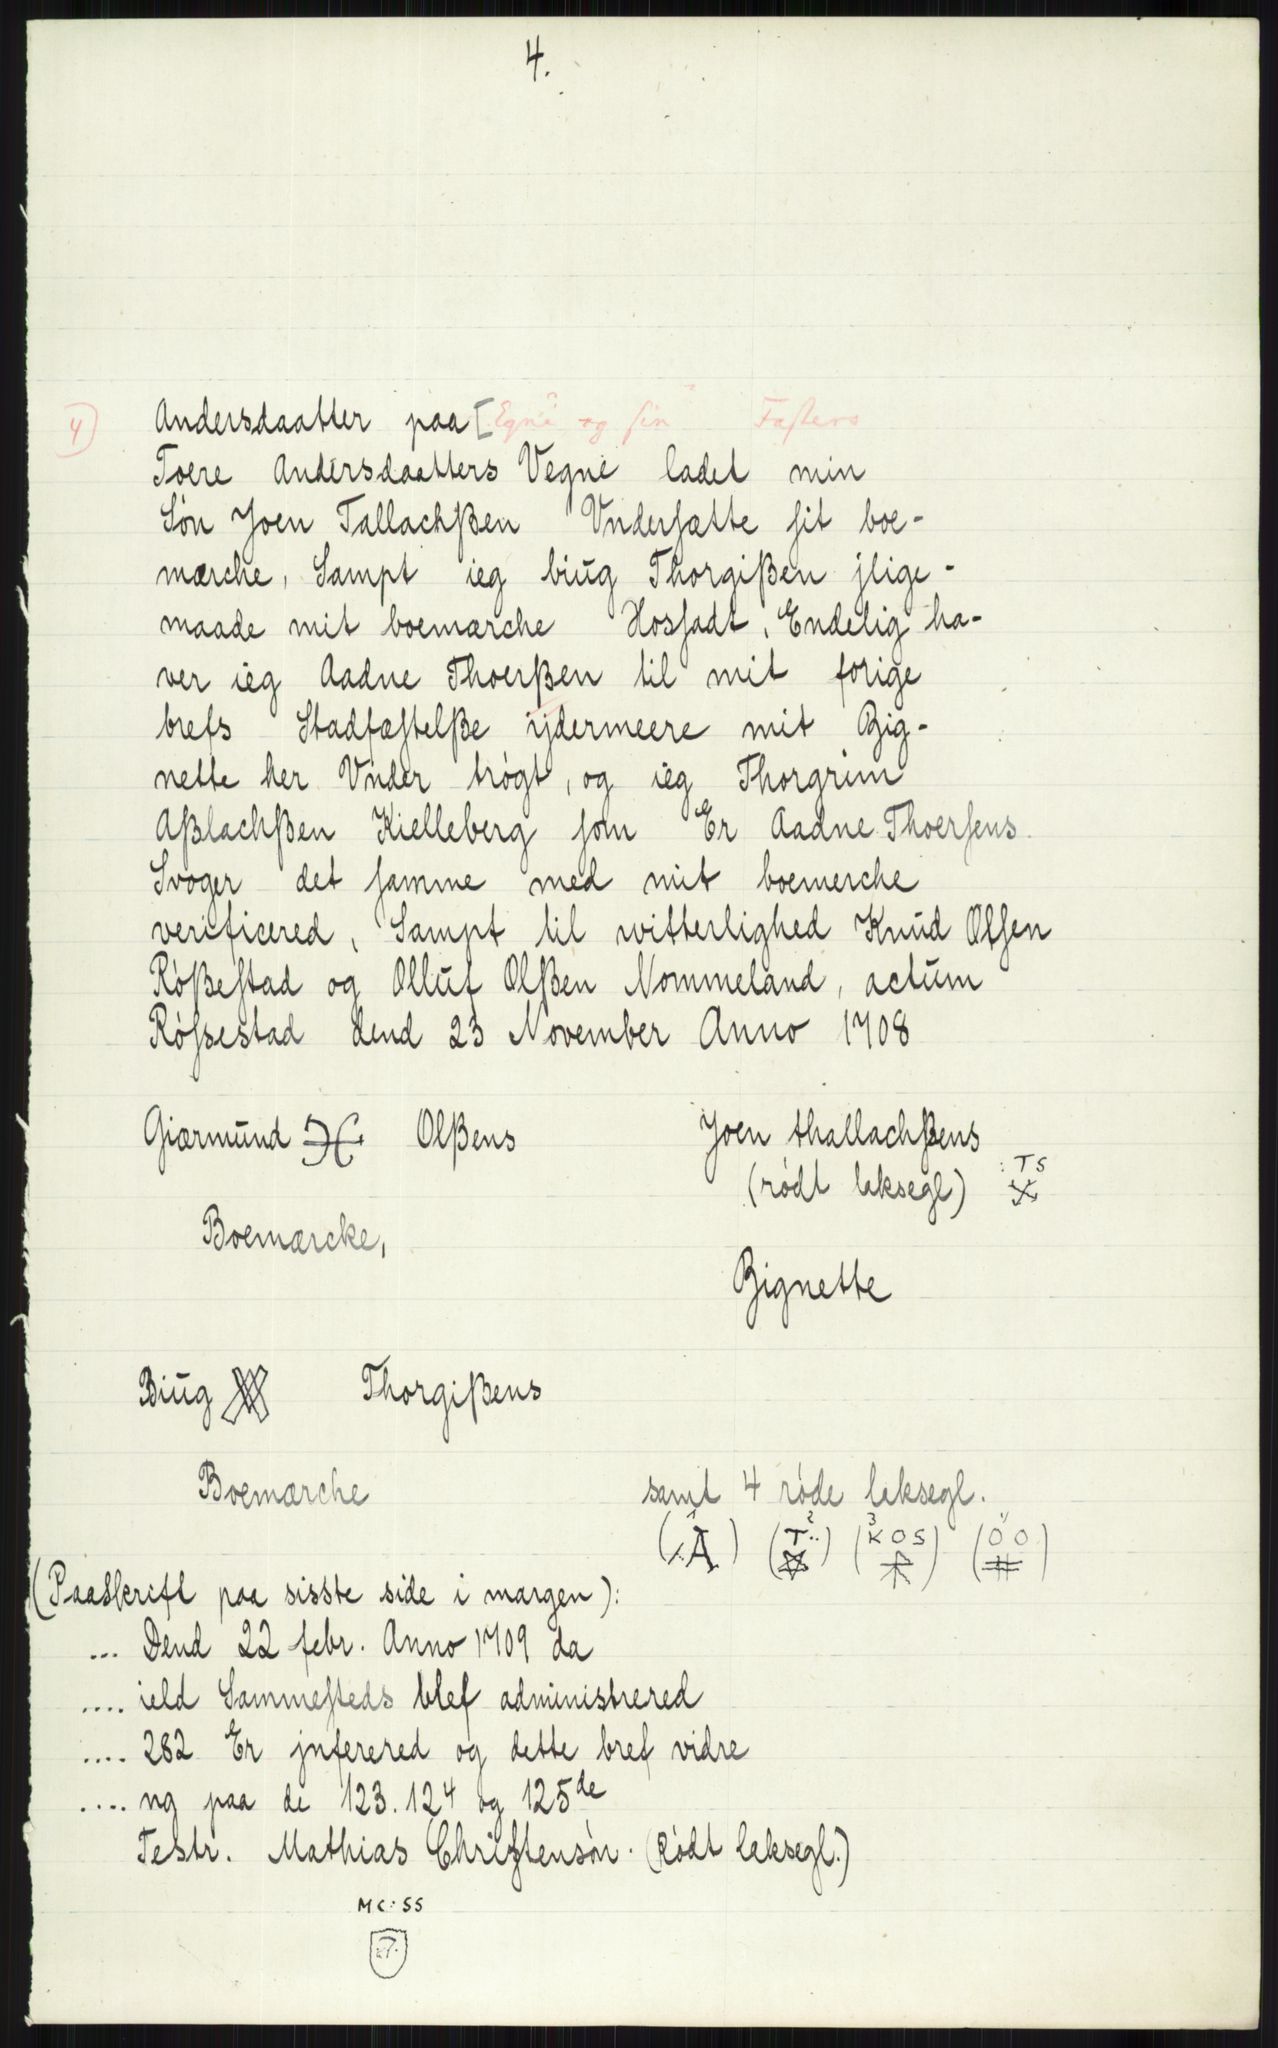 4.
4) Andersdaatter paa [Egne og sin Fasters
Toere Andersdaatters Vegne ladet min
Søn Joen Tallachßen Vndersætte sit boe-
mærche, Sampt ieg biug Thorgißen jlige-
maade mit boemærche Hossadt, Endelig ha-
ver ieg Aadne Thoerßen til mit forige
brefs Stadfæstelße ijdermeere mit Zig-
nette her Vnder trøgt, og ieg Thorgrim
Aßlachßen Kielleberg som Er Aadne Thoersens
Svoger det samme med mit boemerche
verificered, Sampt til witterlighed Knud Olsen
Rößestad og Olluf Olßen Nommeland, actum
Rößestad dend 23 November Anno 1708
Giærmund Olßens
Joen thallachßens
(rødt laksegl) : TS
Boemærcke,
Zignette
Biug Thorgißens
Boemærche
samt 4 røde laksegl.
(1 A) (2 T..) (3 KOS) (4 OO)
(Paaskrift paa sisste side i margen):
... Dend 22 febr. Anno 1709 da
.... ield Sammesteds blef administrered
.... 282 Er jnferered og dette bref vidre
.... ng paa de 123. 124 og 125de
Testr. Mathias Christensön. (Rødt laksegl.)
MC:SS